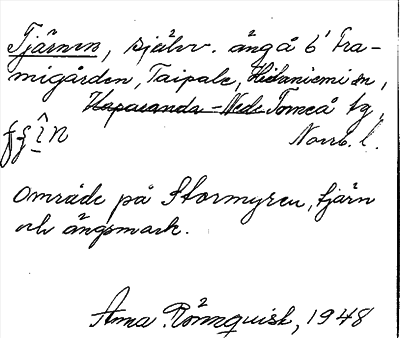 Tjärnen, självv. äng å 6' Fra-
migården, Taipale, Hietaniemi sn,
Haparanda - Nede Torneå tg,
Norrb. l.
Område på Stormyren, tjärn
och ängsmark.
Anna Rönnquist, 1948